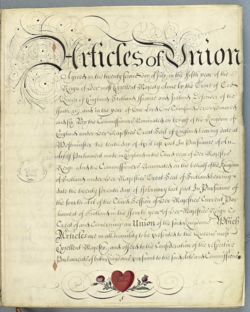 Articles of Union
Agreed on the twenty Second day of July in the fifth year of the
Reign of Her most Excellent Majesty Anne by the Grace of God
Queen of England Scotland France and Ireland Defender of the
Faith &c and in the year of Our Lord One thousand seven hundred
and six By the Commissioners Nominated on behalf of the Kingdom of
England under Her Majesties Great Seal of England bearing date at
Westminster the tenth day of April last past In pursuance of an
Act of Parliament made in England in the third year of Her Majesties
Reign and the Commissioners Nominated on the behalf of the Kingdom
of Scotland under Her Majesties Great Seal of Scotland bearing
date the twenty seventh day of February last past In Pursuance of
the fourth Act of the third Session of
Parliament of Scotland in the
to Treat of and Concerning an Union of the said Kingdoms Which
Articles are in all humility to be presented to the Queens most
Excellent Majesty and offered to the Consideration of the respective
Parliaments of both Kingdoms pursuant to the said Acts and Commissions